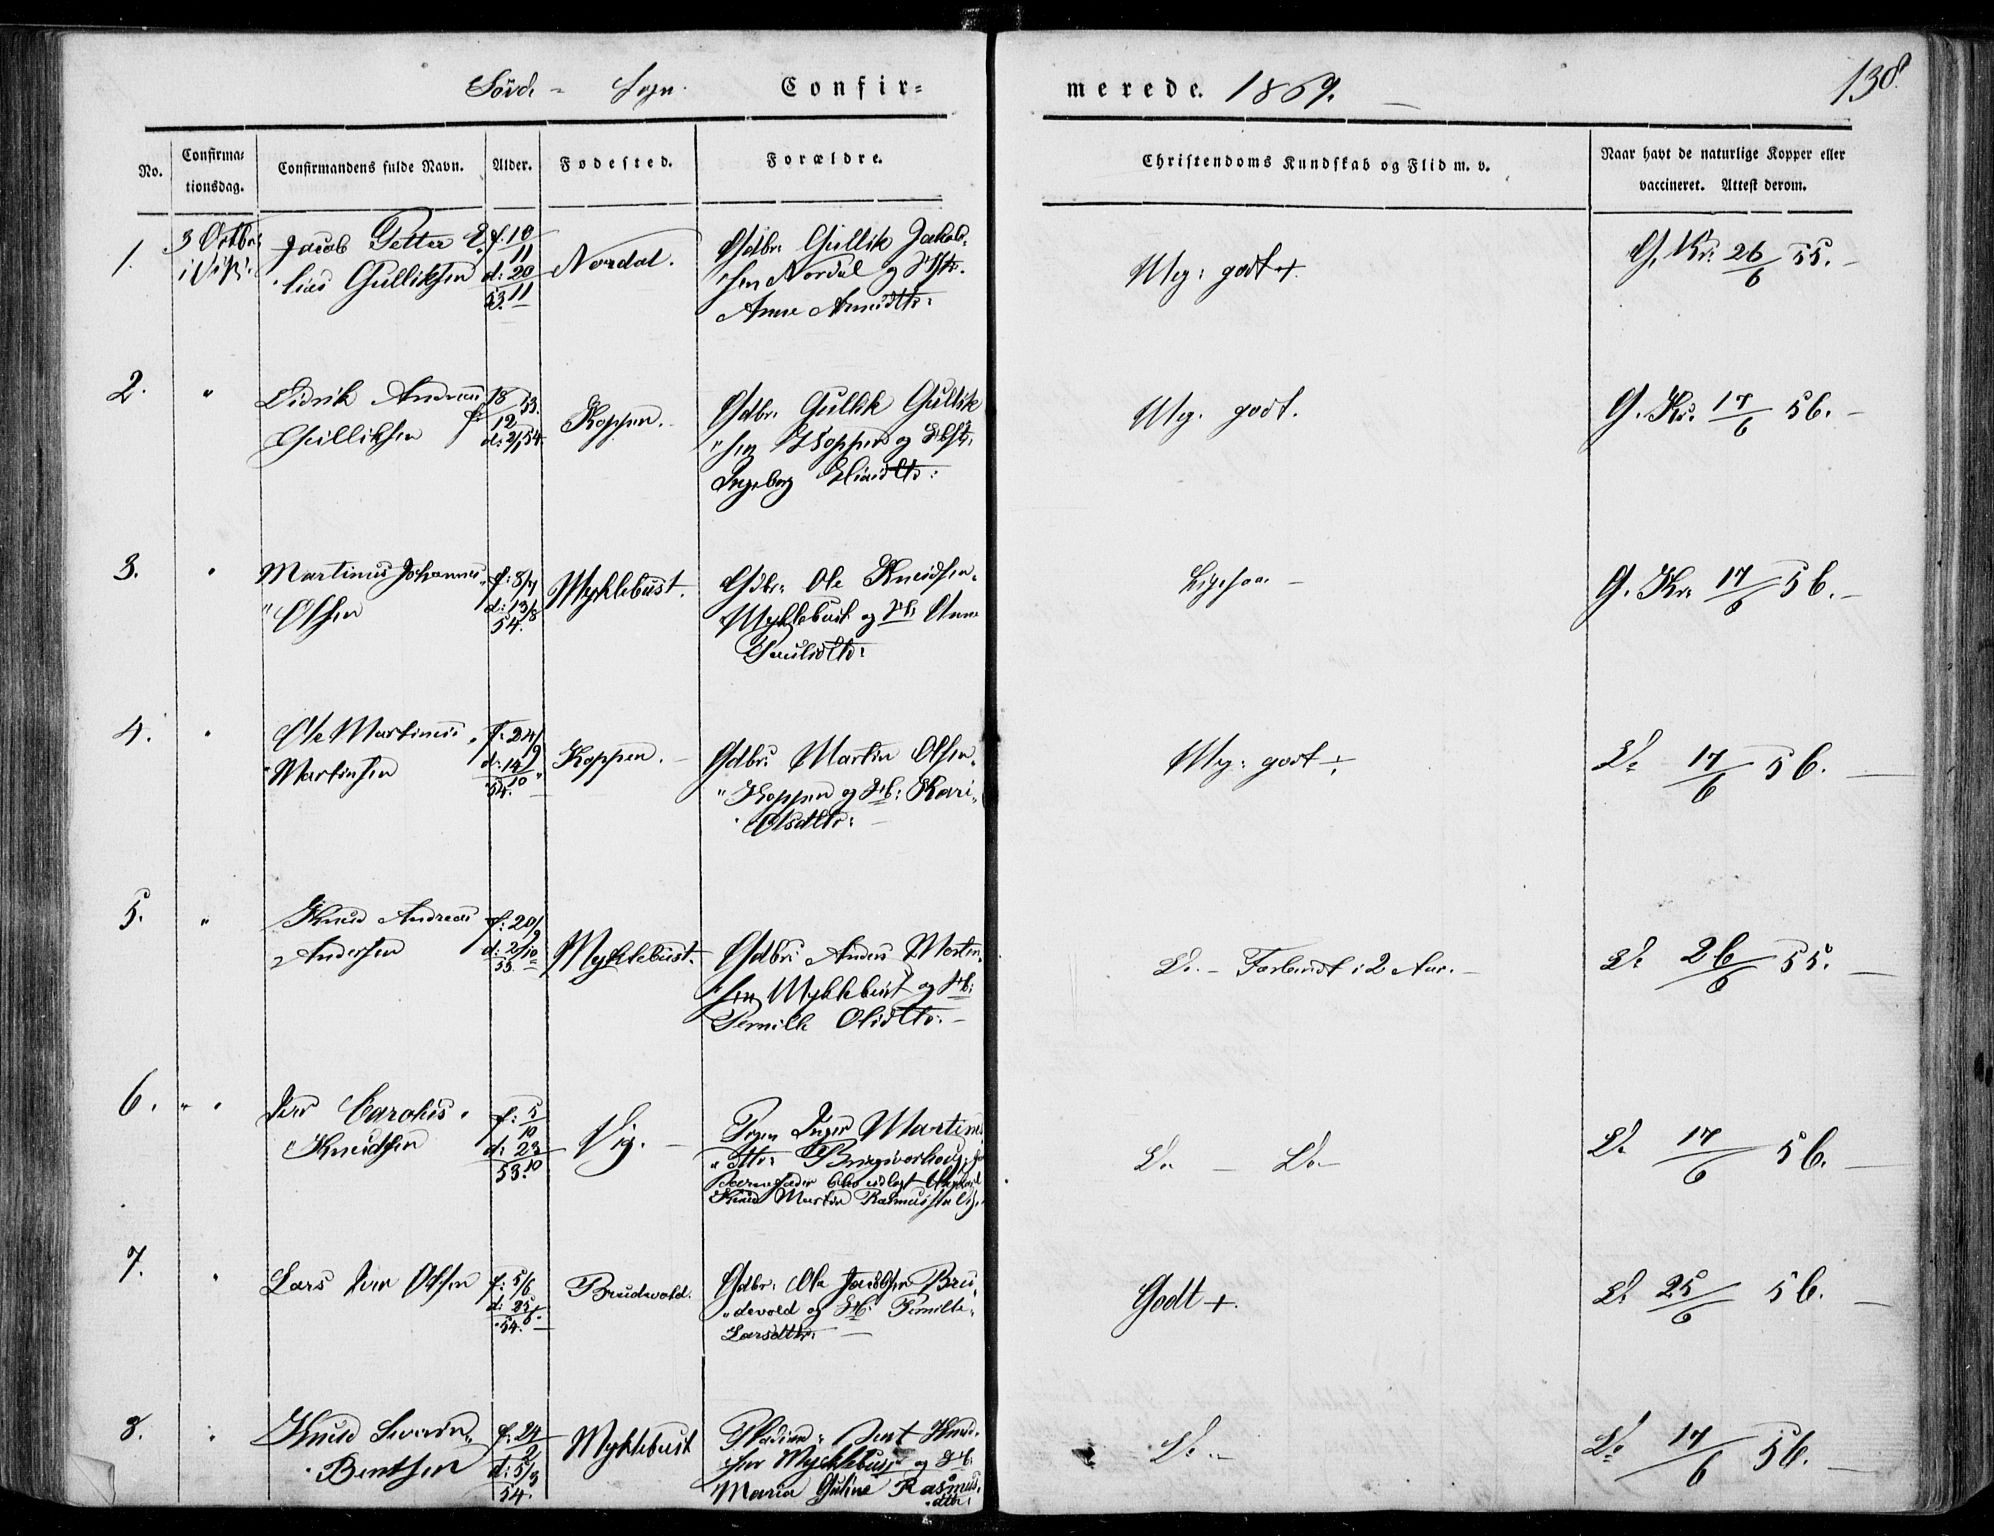 Søvde - Sogn. Confir=
merede. 1869.
138.
No.
Confirma=
tionsdag.
Confirmandens fulde Navn.
Alder.
Fødested.
Forældre.
Christendoms Kundskab og Flid m. v.
Naar havt de naturlige Kopper eller
vaccineret. Attest derom.
1.
3 Octbr:
Jacob Petter E=
lias Gulliksen
f. 10/11
d: 20/11
53.
Nordal.
Gdbr: Gullik Jakob=
sen Nordal og
Anne
Meg: godt +.
G. Kr. 26/6 55.
2.
"
Didrik Andreas
Gulliksen
f. 18/12 53.
d: 2/1 54
Koppen.
Gdbr: Gullik Gullik
sen Koppen og
Ingeborg
Meg. godt.
G. Kr. 17/6 56.
3.
"
Martinus Johannes
Olsen
f: 8/7
d: 13/8
54.
Myklebust.
Gdbr: Ole Knudsen
Myklebust og H: Anne
Paulsdtr:
Ligesaa
G. Kr. 17/6 56.
4.
"
Ole Martinus
Martinsen
f: 24/9
d: 14/10
54.
Koppen.
Gdbr: Martin Olsen
Koppen og H: Kari
Olsdtr:
Meg: godt ÷
Do 17/6 56.
5.
"
Knud Andreas
Andersen
f: 20/9
d: 2/10
55.
Myklebust.
Gdbr: Anders Morten
sen Myklebust og H:
Pernille Olsdtr:
Do. - Forberedt i 2 Aar.
Do 26/6 55.
6.
" "
Iver Carolus
Knudsen
f: 5/10
d: 23/10
53.
Vig.
Pigen Inger Martins
dtr:
Barnefader blev udlagt
Knud Martin Rasmussen Vig.
Do - Do
Do 17/6 56.
7.
"
Lars Iver Olsen
f: 5/6
d: 25/6
54.
Brudevold.
Gdbr: Ole Jacobsen Bru=
devold og H: Pernille
Larsdtr:
Godt +.
Do 25/6 56.
8.
"
Knud Severin
Bentsen
f. 24/2
d: 5/3
54.
Myklebust
Pladsmd: Bent Knud=
sen Myklebust og H:
Maria Guline Rasmus=
dtr:
Do
Do 17/6 56.